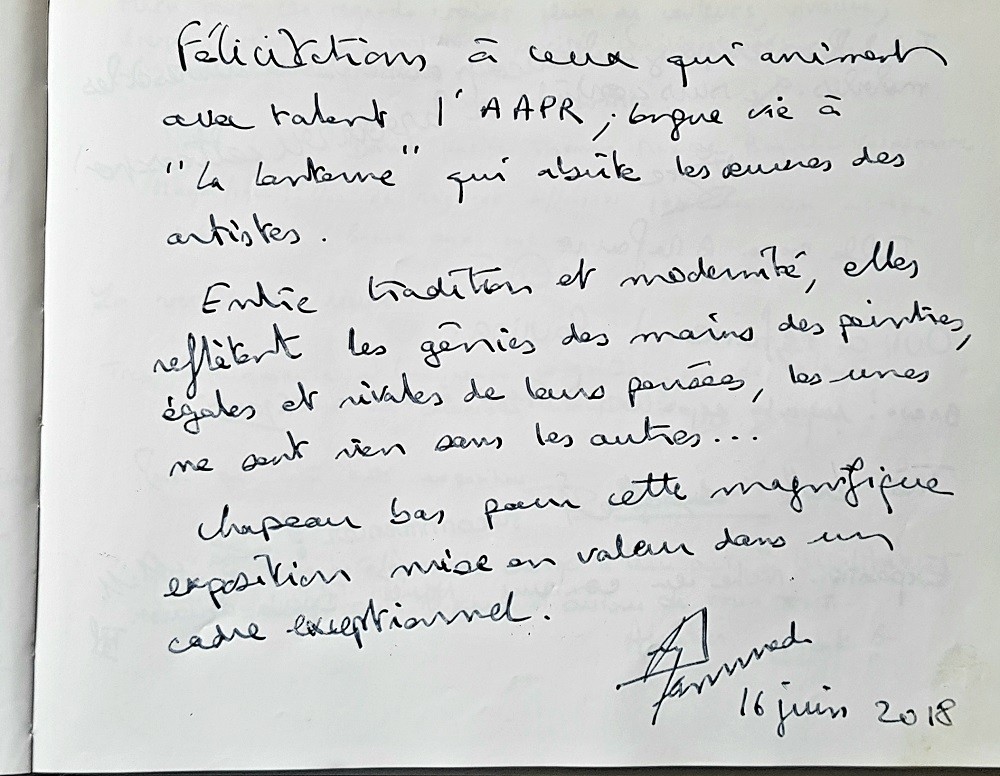 Félicitations à ceux qui animent
avec talent l'AAPR ; longue vie à
"La lanterne" qui abrite les œuvres des
artistes.
Entre tradition et modernité, elles
reflètent les génies des mains des peintres,
égales et rivales de leurs pensées, les unes
ne sont rien sans les autres...
Chapeau bas pour cette magnifique
exposition mise en valeur dans un
cadre exceptionnel.
16 juin 2018